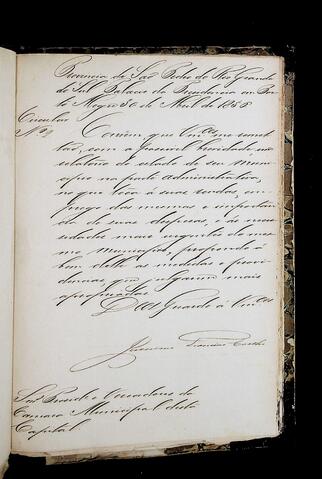 Provincia de São Pedro do Rio Grande
do Sul Palacio da Presidencia em Por-
to Alegre 30 de Abril de 1856
Circular
Nº
Convém que Vmces me remet-
tão, com a possivel brevidade, um
relatorio do estado de seu Muni-
cipio na parte administractiva,
no que toca á suas rendas, em-
prego das mesmas e importan-
cia de suas despesas, e ás neces-
sidades mais urgentes do mes-
mo Municipio, propondo á
bem delle as medidas e provi-
dencias, que julgarem mais
apropriadas.
Deos Guarde á Vmces
Snres Presidente e Vereadores da
Camara Municipal desta
Capital